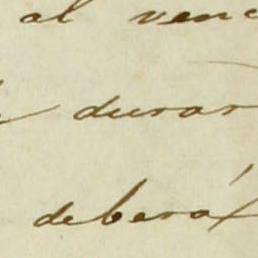 al venc
durar
deberá